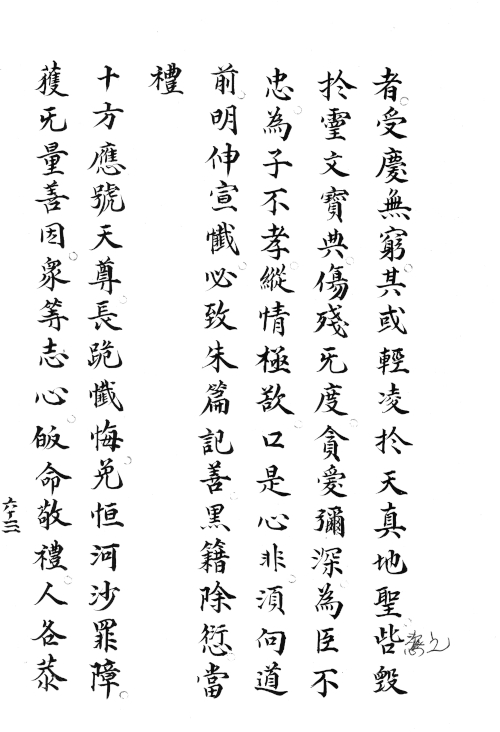 者受慶無窮其或輕凌扵天真地聖呰毀
扵靈文寶典傷殘旡度貪愛彌深為臣不
忠為子不孝縱情極欲口是心非湏向道
前明伸宣懺必致朱篇記善黑籍除愆當
禮
十方應號天尊長跪懺悔免恒河沙罪障
獲旡量善因衆等志心皈命敬禮人各恭
六十三